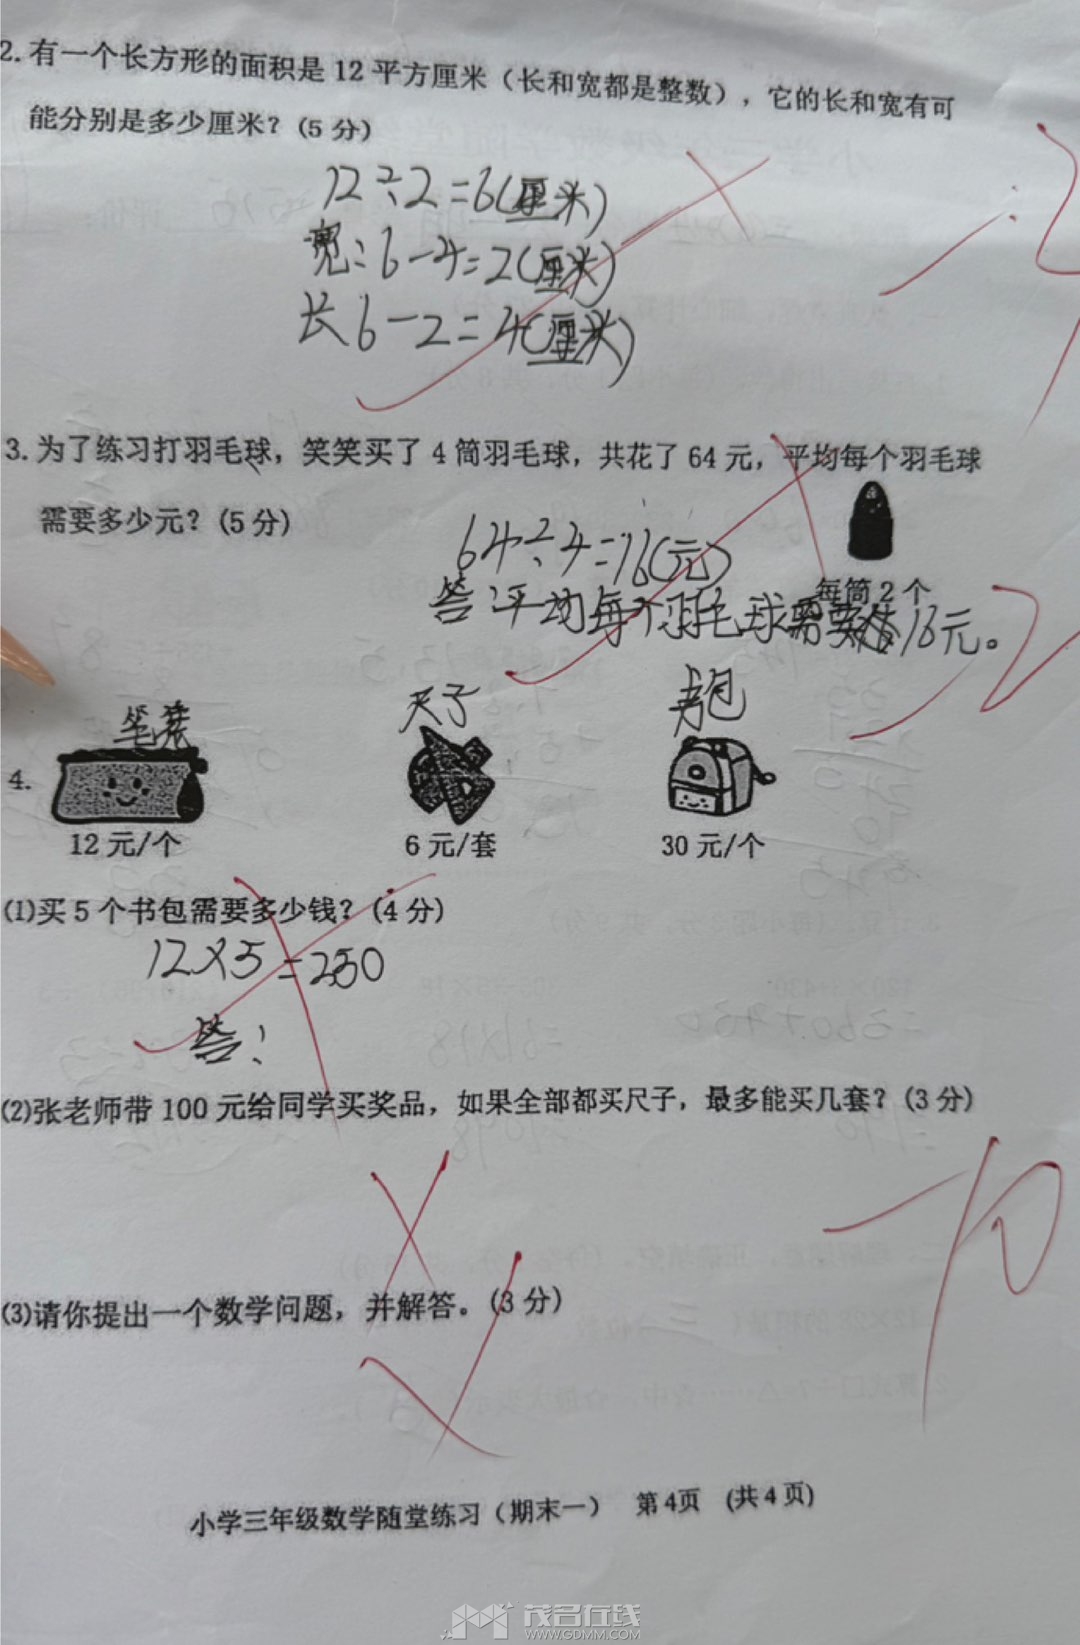 2.有一个长方形的面积是12平方厘米（长和宽都是整数），它的长和宽有可
能分别是多少厘米？（5分）
12÷2=6（厘米）
宽：6-4=2（厘米）
长6-2=4（厘米）
3.为了练习打羽毛球，笑笑买了4筒羽毛球，共花了64元，平均每个羽毛球
需要多少元？（5分）
64÷4=16（元）
每筒2个
答：平均每个羽毛球需要16元。
-2
笔袋 尺子 书包
4.
12元/个 6元/套 30元/个
(1)买5个书包需要多少钱？（4分）
12×5=250
答：
(2)张老师带100元给同学买奖品，如果全部都买尺子，最多能买几套？（3分）
-10
(3)请你提出一个数学问题，并解答。（3分）
小学三年级数学随堂练习（期末一） 第4页 （共4页）
茂名在线
WWW.GDMM.COM